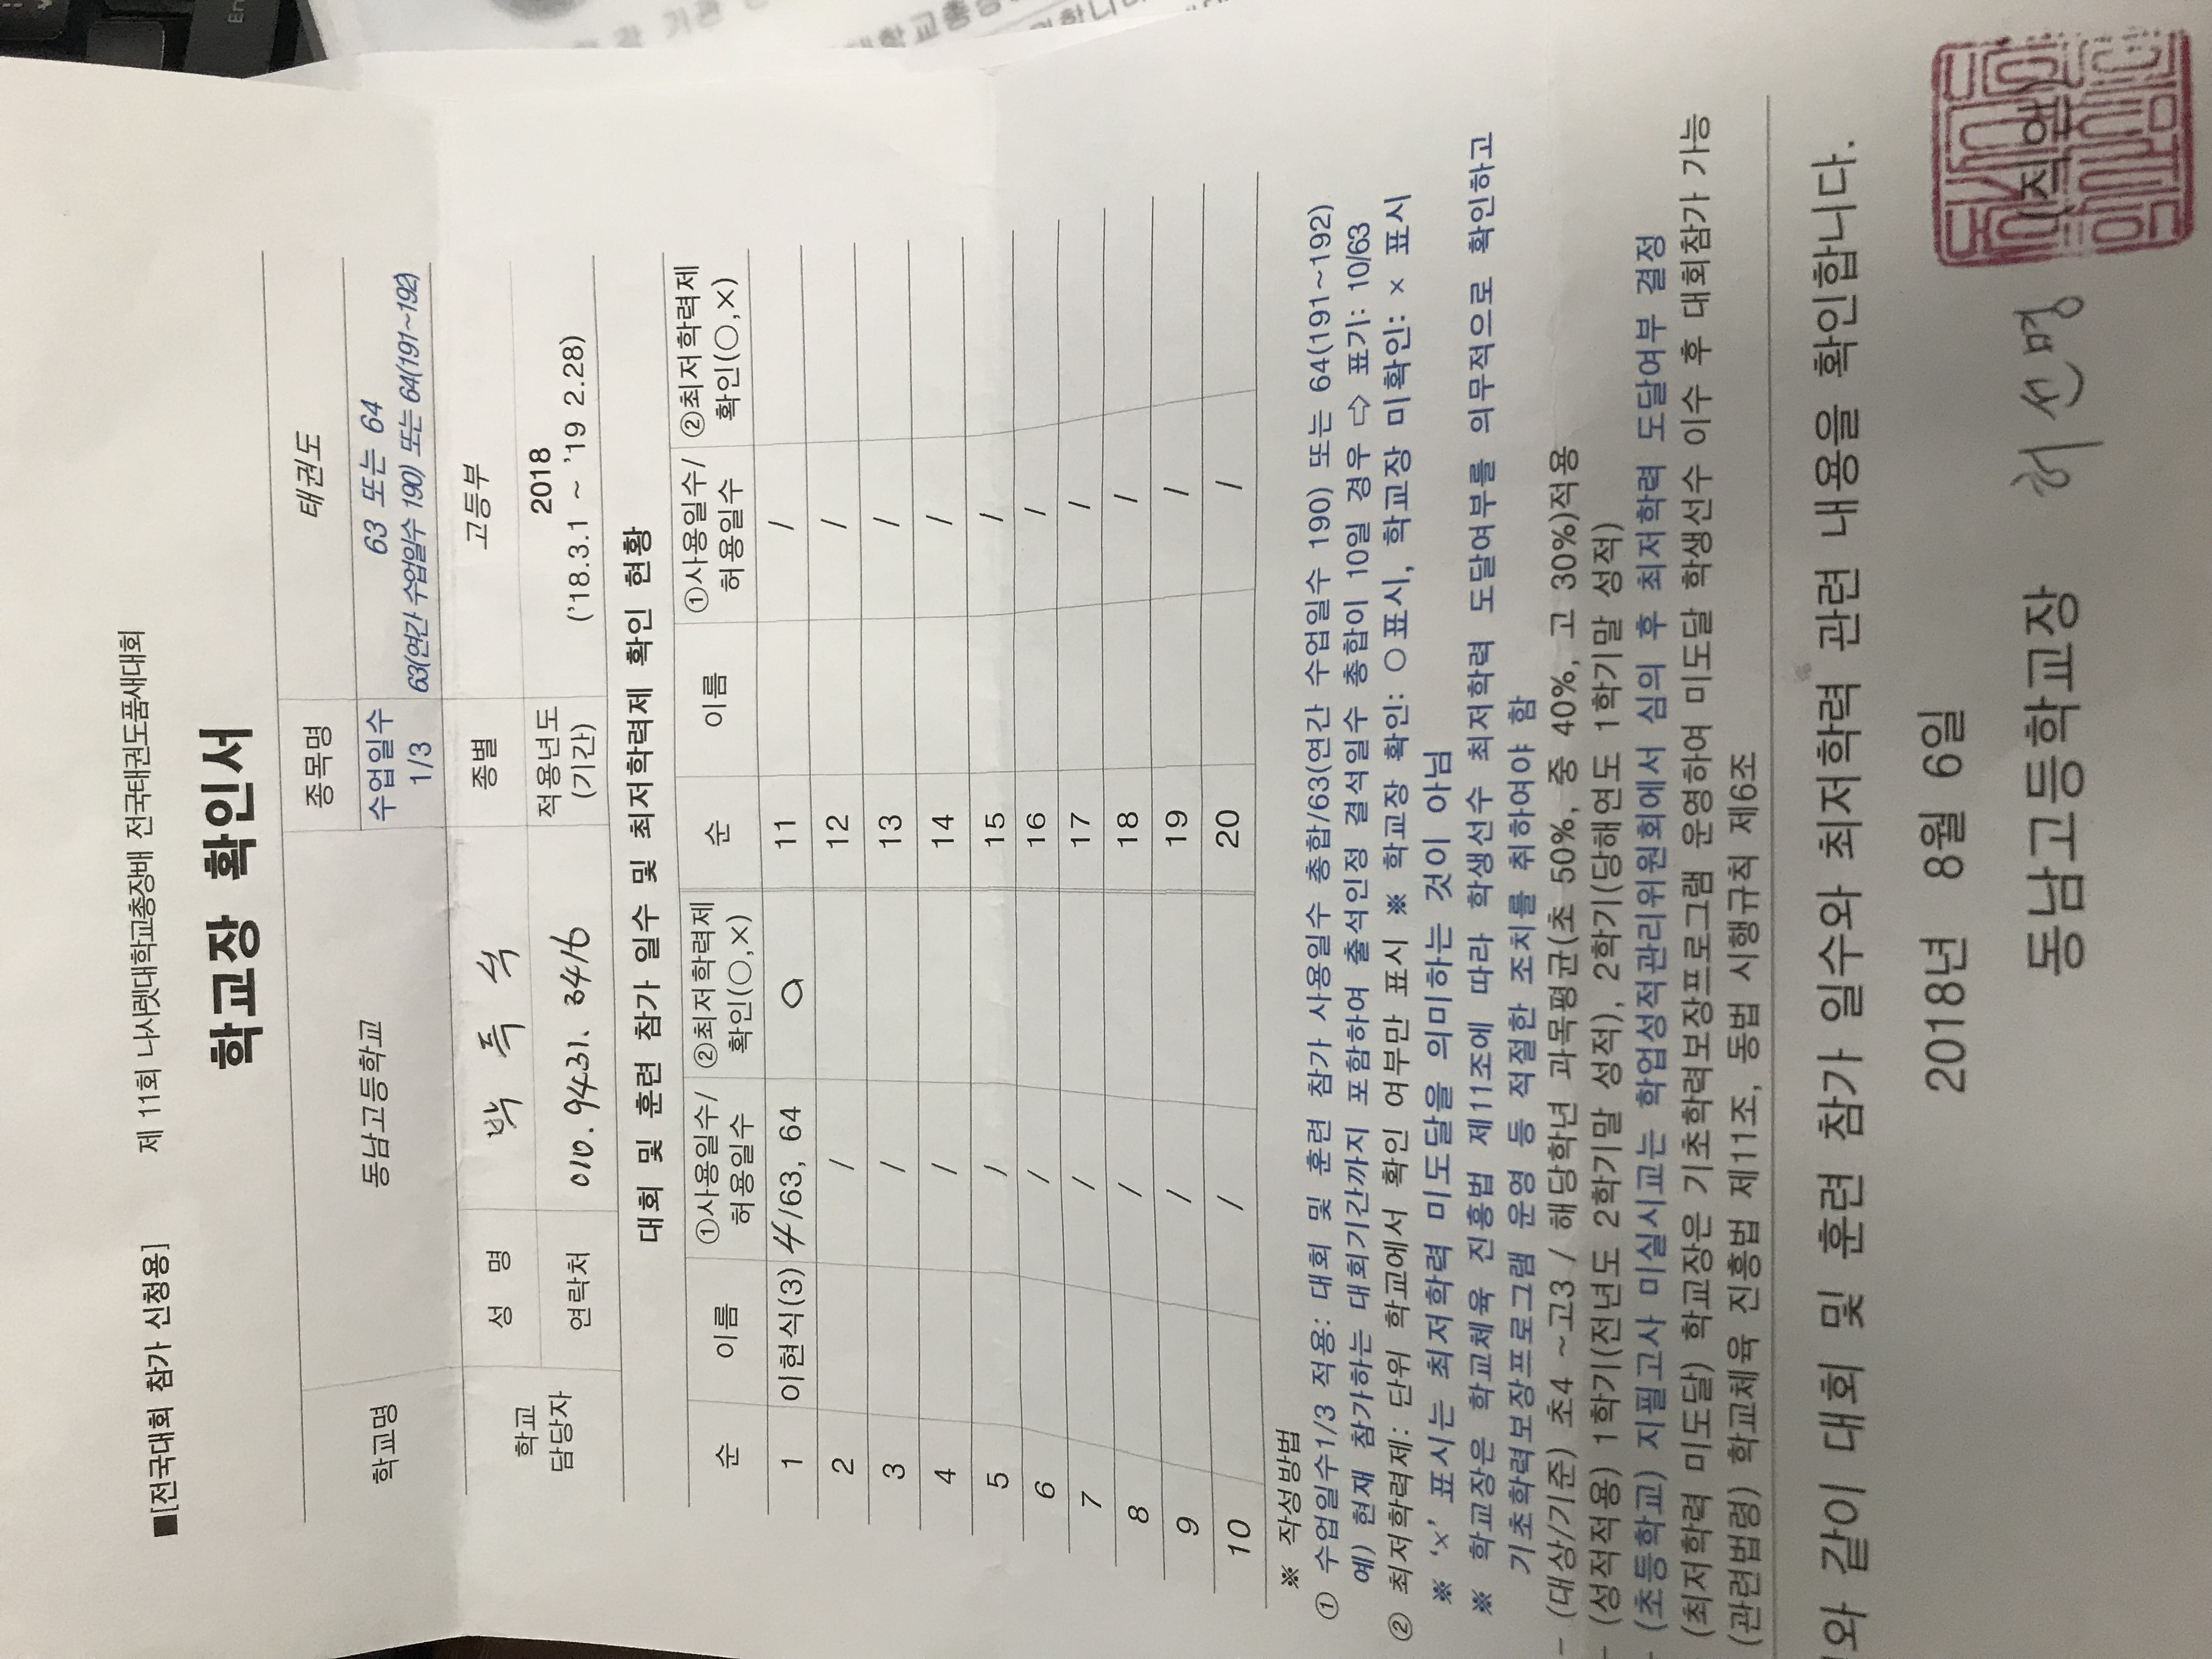 ■[전국대회 참가 신청용] 제 11회 나사렛대학교총장배 전국태권도품새대회
학교장 확인서
학교명 동남고등학교 종목명 태권도
수업일수 1/3 63 또는 64
63(연간 수업일수 190) 또는 64(191~192)
학교 담당자 성 명 박 특 식 종별 고등부
연락처 010. 9431. 3416 적용년도 (기간) 2018
('18.3.1 ~ '19 2.28)
대회 및 훈련 참가 일수 및 최저학력제 확인 현황
순 이름 ①사용일수/허용일수 ②최저학력제 확인(○,×) 순 이름 ①사용일수/허용일수 ②최저학력제 확인(○,×)
1 이현식(3) 4/63, 64 O 11 /
2 / 12 /
3 / 13 /
4 / 14 /
5 / 15 /
6 / 16 /
7 / 17 /
8 / 18 /
9 / 19 /
10 / 20 /
※ 작성방법
① 수업일수1/3 적용: 대회 및 훈련 참가 사용일수 총합/63(연간 수업일수 190) 또는 64(191~192)
예) 현재 참가하는 대회기간까지 포함하여 출석인정 결석일수 총합이 10일 경우 ⇨ 표기: 10/63
② 최저학력제: 단위 학교에서 확인 여부만 표시 ※ 학교장 확인: ○표시, 학교장 미확인: × 표시
※ '×' 표시는 최저학력 미도달을 의미하는 것이 아님
※ 학교장은 학교체육 진흥법 제11조에 따라 학생선수 최저학력 도달여부를 의무적으로 확인하고
기초학력보장프로그램 운영 등 적절한 조치를 취하여야 함
- (대상/기준) 초4 ~고3 / 해당학년 과목평균(초 50%, 중 40%, 고 30%)적용
- (성적적용) 1학기(전년도 2학기말 성적), 2학기(당해연도 1학기말 성적)
- (초등학교) 지필고사 미실시교는 학업성적관리위원회에서 심의 후 최저학력 도달여부 결정
(최저학력 미도달) 학교장은 기초학력보장프로그램 운영하여 미도달 학생선수 이수 후 대회참가 가능
(관련법령) 학교체육 진흥법 제11조, 동법 시행규칙 제6조
와 같이 대회 및 훈련 참가 일수와 최저학력 관련 내용을 확인합니다.
2018년 8월 6일
동남고등학교장 허선명 (직인)